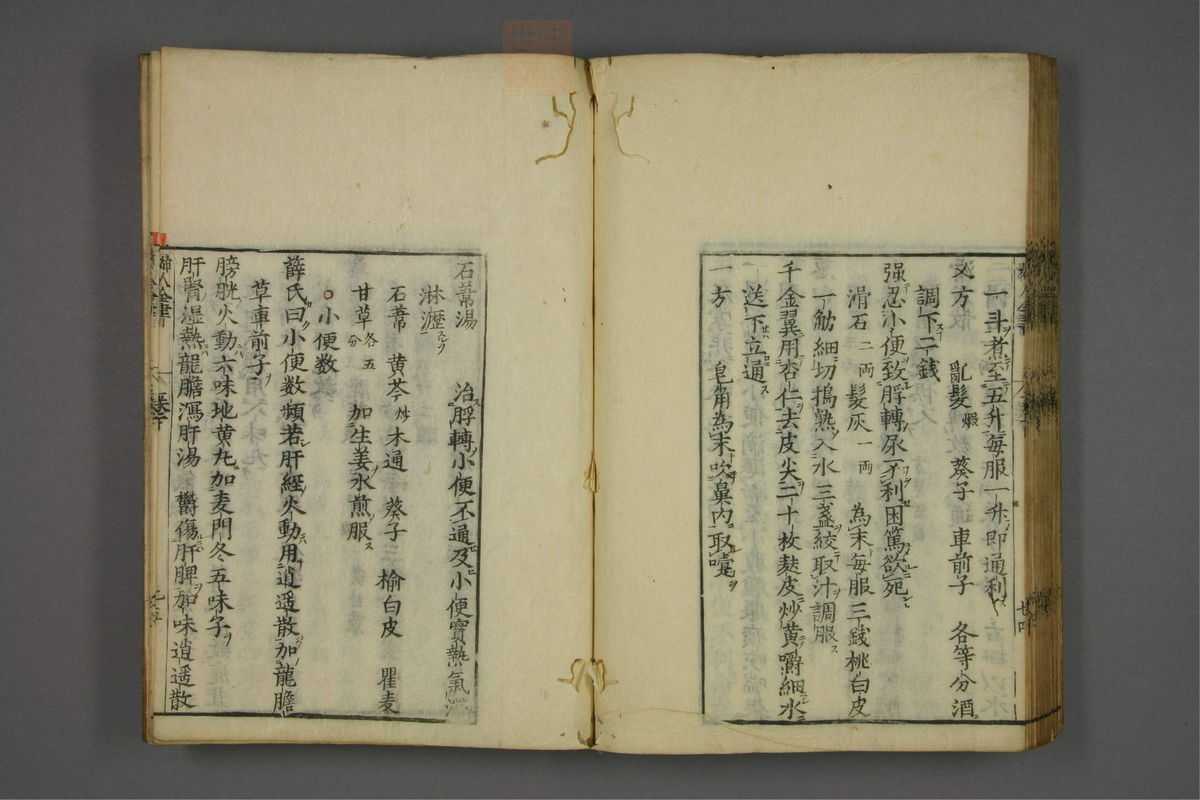 一斗煮至五升每服一升即通利
又方　亂髮煅　葵子　車前子　各等分酒
調下二錢
强忍小便致脬轉尿不利困篤欲死
滑石二両　髮灰一両　為末每服三錢桃白皮
一觔細切搗熟入水三盞絞取汁調服
千金翼用杏仁去皮尖二十枚麸皮炒黄嚼細水
送下立通
一方　皂角為末吹鼻內取嚏
石葦湯　治脬轉小便不通及小便實熱氣
淋瀝
石葦　黄芩炒　木通　葵子　榆白皮　瞿麦
甘草各五分　加生姜水煎服
○小便数
薛氏曰小便数頻若肝経火動用逍遥散加龍膽
草車前子
膀胱火動六味地黄丸加麦門冬五味子
肝腎湿熱龍膽瀉肝湯　欝傷肝脾加味逍遥散